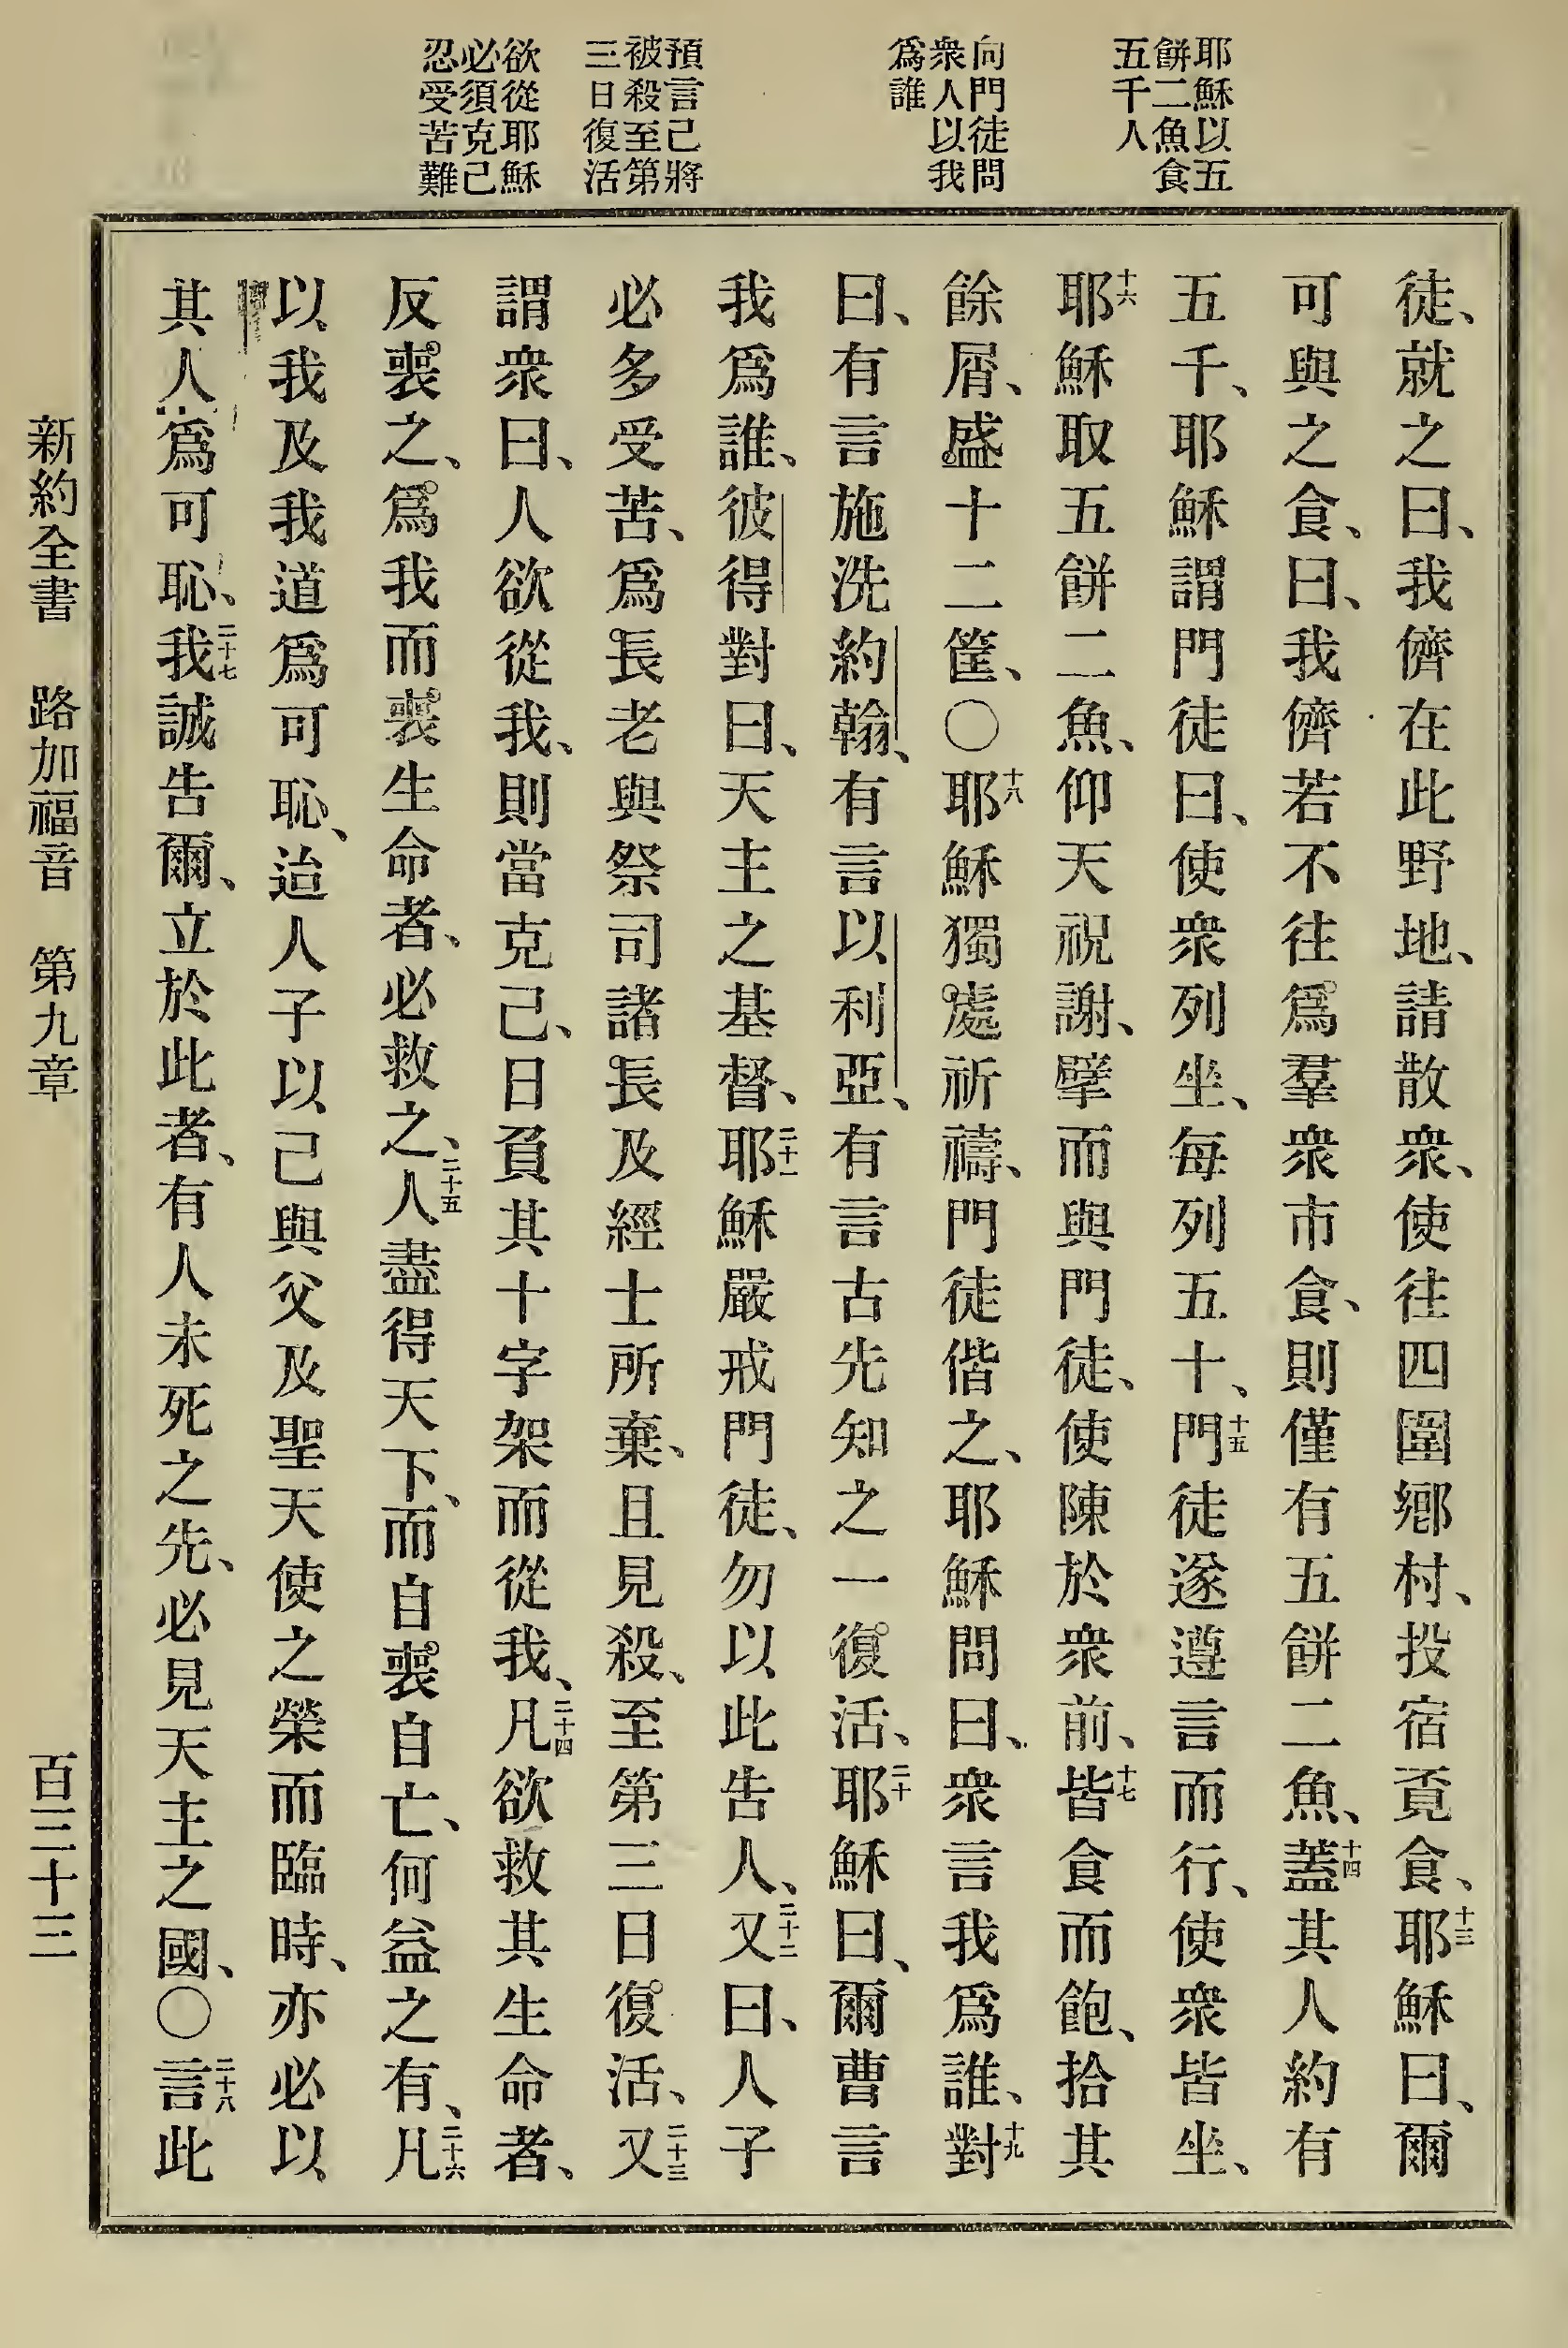 耶穌以五
餅二魚食
五千人
向門徒問
衆人以我
爲誰
預言己將
被殺至第
三日復活
欲從耶穌
必須克己
忍受苦難
徒、就之曰、我儕在此野地、請散衆、使往四圍鄉村、投宿覓食、十三耶穌曰、爾
可與之食、曰、我儕若不往爲羣衆市食、則僅有五餅二魚、十四蓋其人約有
五千、耶穌謂門徒曰、使衆列坐、每列五十、十五門徒遂遵言而行、使衆皆坐、
十六耶穌取五餅二魚、仰天祝謝、擘而與門徒、使陳於衆前、十七皆食而飽、拾其
餘屑、盛十二筐、〇十八耶穌獨處祈禱、門徒偕之、耶穌問曰、衆言我爲誰、十九對
曰、有言施洗約翰、有言以利亞、有言古先知之一復活、二十耶穌曰、爾曹言
我爲誰、彼得對曰、天主之基督、二十一耶穌嚴戒門徒、勿以此告人、二十二又曰、人子
必多受苦、爲長老與祭司諸長及經士所棄、且見殺、至第三日復活、二十三又
謂衆曰、人欲從我、則當克己、日負其十字架而從我、二十四凡欲救其生命者、
反喪之、爲我而喪生命者、必救之、二十五人盡得天下、而自喪自亡、何益之有、二十六凡
以我及我道爲可恥、迨人子以己與父及聖天使之榮而臨時、亦必以
其人爲可恥、二十七我誠告爾、立於此者、有人未死之先、必見天主之國、〇二十八言此
新約全書 路加福音 第九章 百三十三